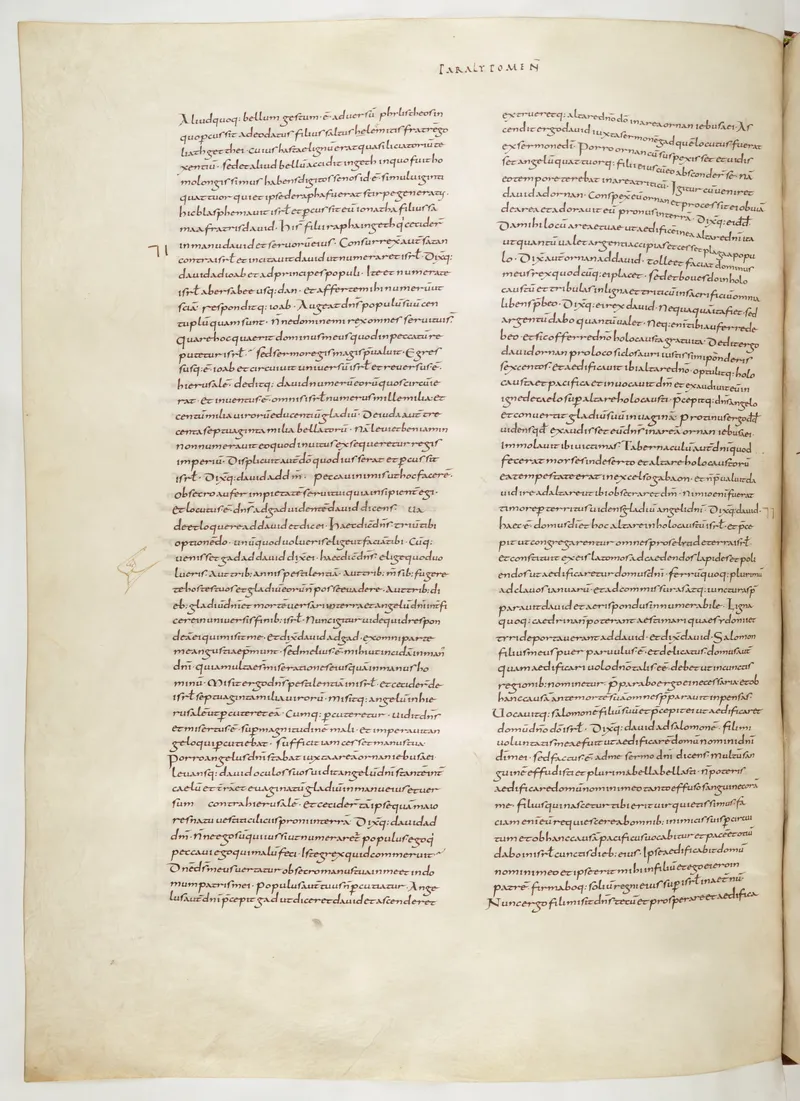 PARALYPOMEÑ
Aliudquoq: bellum gestum·ē·aduersū philistheosin
quopercussit adeodatus filius saltus bethlemitesfratrēgo
liathgetthei· cuius hastaelignūeratquasiliciatoriūte
xentiū· sedetaliud bellūaccidit ingeth inquofuitho
molongissimus habensdigitossenosidē·simuluiginti
quattuor· quietipsederaphafuerat stirpegeneratus·
hicblasphemauit isrł· etpercussit eū ionatha filiussā
maafratrisdauid· Hisť filiiraphaingeth q̄ceciderť
inmanudauid etseruorūeius· Consurrexitautsatan
contraisrł· etincitauitdauid utnumeraretisrł· Dix̄q:
dauidadioab· etadprincipespopuli· Ite et numerate
isrł· abersabee usq: dan· Et affertemihi numerūut
sciā· responditq: ioab· Augeat dn̄spopulūsuū cen
tuplūquamsunt· Nnedominemi rex omnes seruituiſ
quarehocquaerit dominusmeus quodinpeccatū re
puteturisrł· sedsermoregismagispreualuit· Egres
susq:·ē·ioab· et circuiuit uniuersūisrł· etreuersusē·
hierusalē· deditq: dauidnumerūeorūquoscircuie
rat· Etinuentusē·omnisisrł·numerusmillemilia·et
centūmilia uirorūeducentiūgladiū· Deiudaautē·tre
centaseptuaginta milia bellatorū· Nā leui et beniamin
nonnumerauit· eoquod inuitus exsequeretur regis
imperiū· Displicuitautēdō quodiusserat· etpercussit
isrł· Dix̄q: dauid add̄m̄· peccauinimisuthocfacerē·
obsecro aufer impietatē seruitui quiainsipientēegi·
Etlocutusē·dn̄s· adgad uidentēdauid dicens· ua
deetloquereaddauid et dicei· Haecdicit dn̄s· triūtibi
optionēdo· unūquoduolueriseligeutfaciātibi· Cūq:
uenissetgad addauid dix̄ei· haecdicit dn̄s· eligequoduo
lueris· Aut trib: annis pestilentiā· Aut trib: m̄sib: fugere
tehostestuos et gladiūeorūn̄posseeuadere· Aut trib: di
eb: gladiūdn̄i·et mortēuersari interra et angelūdn̄iint̄fi
cere inuniuersisfinib: isrł· Nuncigitur uidequidrespon
deāeiquimisitme· Etdix̄dauid adgad· exomniparte
meangustiaepmunt· sedmeliusē·mihi ut incidāinman'
dn̄i· quiamultaesmiserationeseius quāinmanusho
minū· Misitergodn̄spestilentiāinisrł· et ceciderť de
isrł· septuagintamiliauirorū· misitq: angelūinhie
rusalē utpercuteret eā· Cumq: percuteretur· uiditdn̄s
etmisertusē· supmagnitudinē mali· Et imperauitan
gelo quipercutiebat· sufficit iam cesset manustua·
Porroangelusdn̄i stabat iuxta areāornan iebusaei·
Leuansq: dauid oculos suos uiditangelūdn̄i stantē int̄
caelū et t̄rā· et euaginatūgladiūinmanueius etuer
sum contrahierusalē· Et ceciderť tāipsequāmaio
resnatu uestiticiliciispronīinterrā· Dix̄q: dauidad
dm̄· Nn̄eegosūquiiussiutnumeraretť populus· egoq̄
peccaui egoquimalūfeci· Istegrex quidcommeruit·
Dn̄eds̄meus uertatur obsecro manustuainme etindo
mumpatrismei· populusaut̄tuusn̄percutiatur· Ange
lusaut̄dn̄i·pcepit gad utdiceretdauid· etascenderet
extrueretq: altaredn̄o dō inareaornan iebusaei· As
cendit ergodauid iuxtasermonēgad quēlocutusfuerat
exsermonedn̄i· Porro ornan cūsuspexisset et uidis
set angelū quattuorq: filii eiuscūeo absconderť se· nā
eotempore terebat inarea triticū· Igitur cū ueniret
dauidadornan· Conspexeū ornan et processitei obuiā
deareaetadorauit eū pronus interrā· Dix̄q: eidd̄·
Damihilocū areaetuae· utaedificeinea altaredn̄o ita
ut quantūualet argenti accipias· et cesset plaga apopu
lo· Dix̄ aut̄ ornan addauid· tolle et faciat dominus
meus rex quodcūq: ei placet· sed et bouesdoinholo
caustū et tribulas inligna et triticūinsacrificiū omnia
libenspr̄beo· Dix̄q: ei rex dauid· Nequaquā itafiet· sed
argentūdabo quantūualet· Neq: enītibi auferrede
beo· et sic offerredn̄o holocaustagratuita· Deditergo
dauid ornan proloco siclosauri iustissimiponderis
sexcentos· Et aedificauit ibi altaredn̄o· optulitq: holo
causta et pacifica· et inuocauit dn̄m· et exaudiuit eū in
ignedecaelosup altareholocausti· pcepitq: dn̄s angelo
et conuertit gladiūsuū inuaginā· Protinusergod̄d̄
uidensqd̄ exaudisset eū dn̄s· inarea ornan iebusaei·
immolauit ibi uictimas· Tabernaculū aut̄ dn̄i quod
fecerat moyses indeserto· et altare holocaustorū
eatempestate erat inexcelso gabaon· et n̄pualuitda
uid ireadaltare ut ibi obsecraretdm̄· Nimioenī fuerat
timore perterritus uidens gladiū angelidn̄i· Dix̄q: dauid·
haecē·domusdn̄i· et hoc altare inholocaustū isrł· Et pce
pit ut congregarentur omnes proselyti deterraisrł·
et constituit exeis latomos adcaedendos lapides et poli
endos ut aedificareturdomusdn̄i· ferrūquoq: plurimū
adclauosianuarū· et adcommissuras atq: iuncturas pp̄
parauitdauid et aerispondusinnumerabile· Ligna
quoq: caedrinan̄poterant aestimari quaesydoniiet
tyriideportauerantaddauid· Etdix̄dauid· Salomon
filiusmeus puer paruulusē· et delicatus· domusaut̄
quamaedificari uolodn̄o talisēē·debet ut incunctis
regionib: nominetur· pparaboergo einecessaria· et ob
hanccausā antemortēsuāomnesp̄parauitimpensas·
Uocauitq: salomonēfiliūsuū· et p̄cepit ei utaedificaret
domūdn̄o dō isrł· Dix̄q: dauid adsalomonē· fili mi
uoluntatismeaefuit utaedificarē domū nomini dn̄i
dī mei· sedfactusē admesermo dn̄i dicens· multū san
guinē effudisti et plurimabellabellasti· n̄poteris
aedificaredomūnominimeo tantoeffusosanguinecorā
me· filiusquinasceturtibi erit uir quietissimus· fa
ciam enī eū requiescere abomnib: inimicissuispercircui
tum· et obhanccausā pacificusuocabitur· et pacēetotiū
daboinisrł· cunctisdieb: eius· Ipseaedificabitdomū
nominimeo· et ipse erit mihi infiliū· et egoeroein
patrē· firmaboq: soliūregnieius supisrł· inaet̄nū·
Nuncergo filimi sit dn̄s tecū et prosperare et aedifica